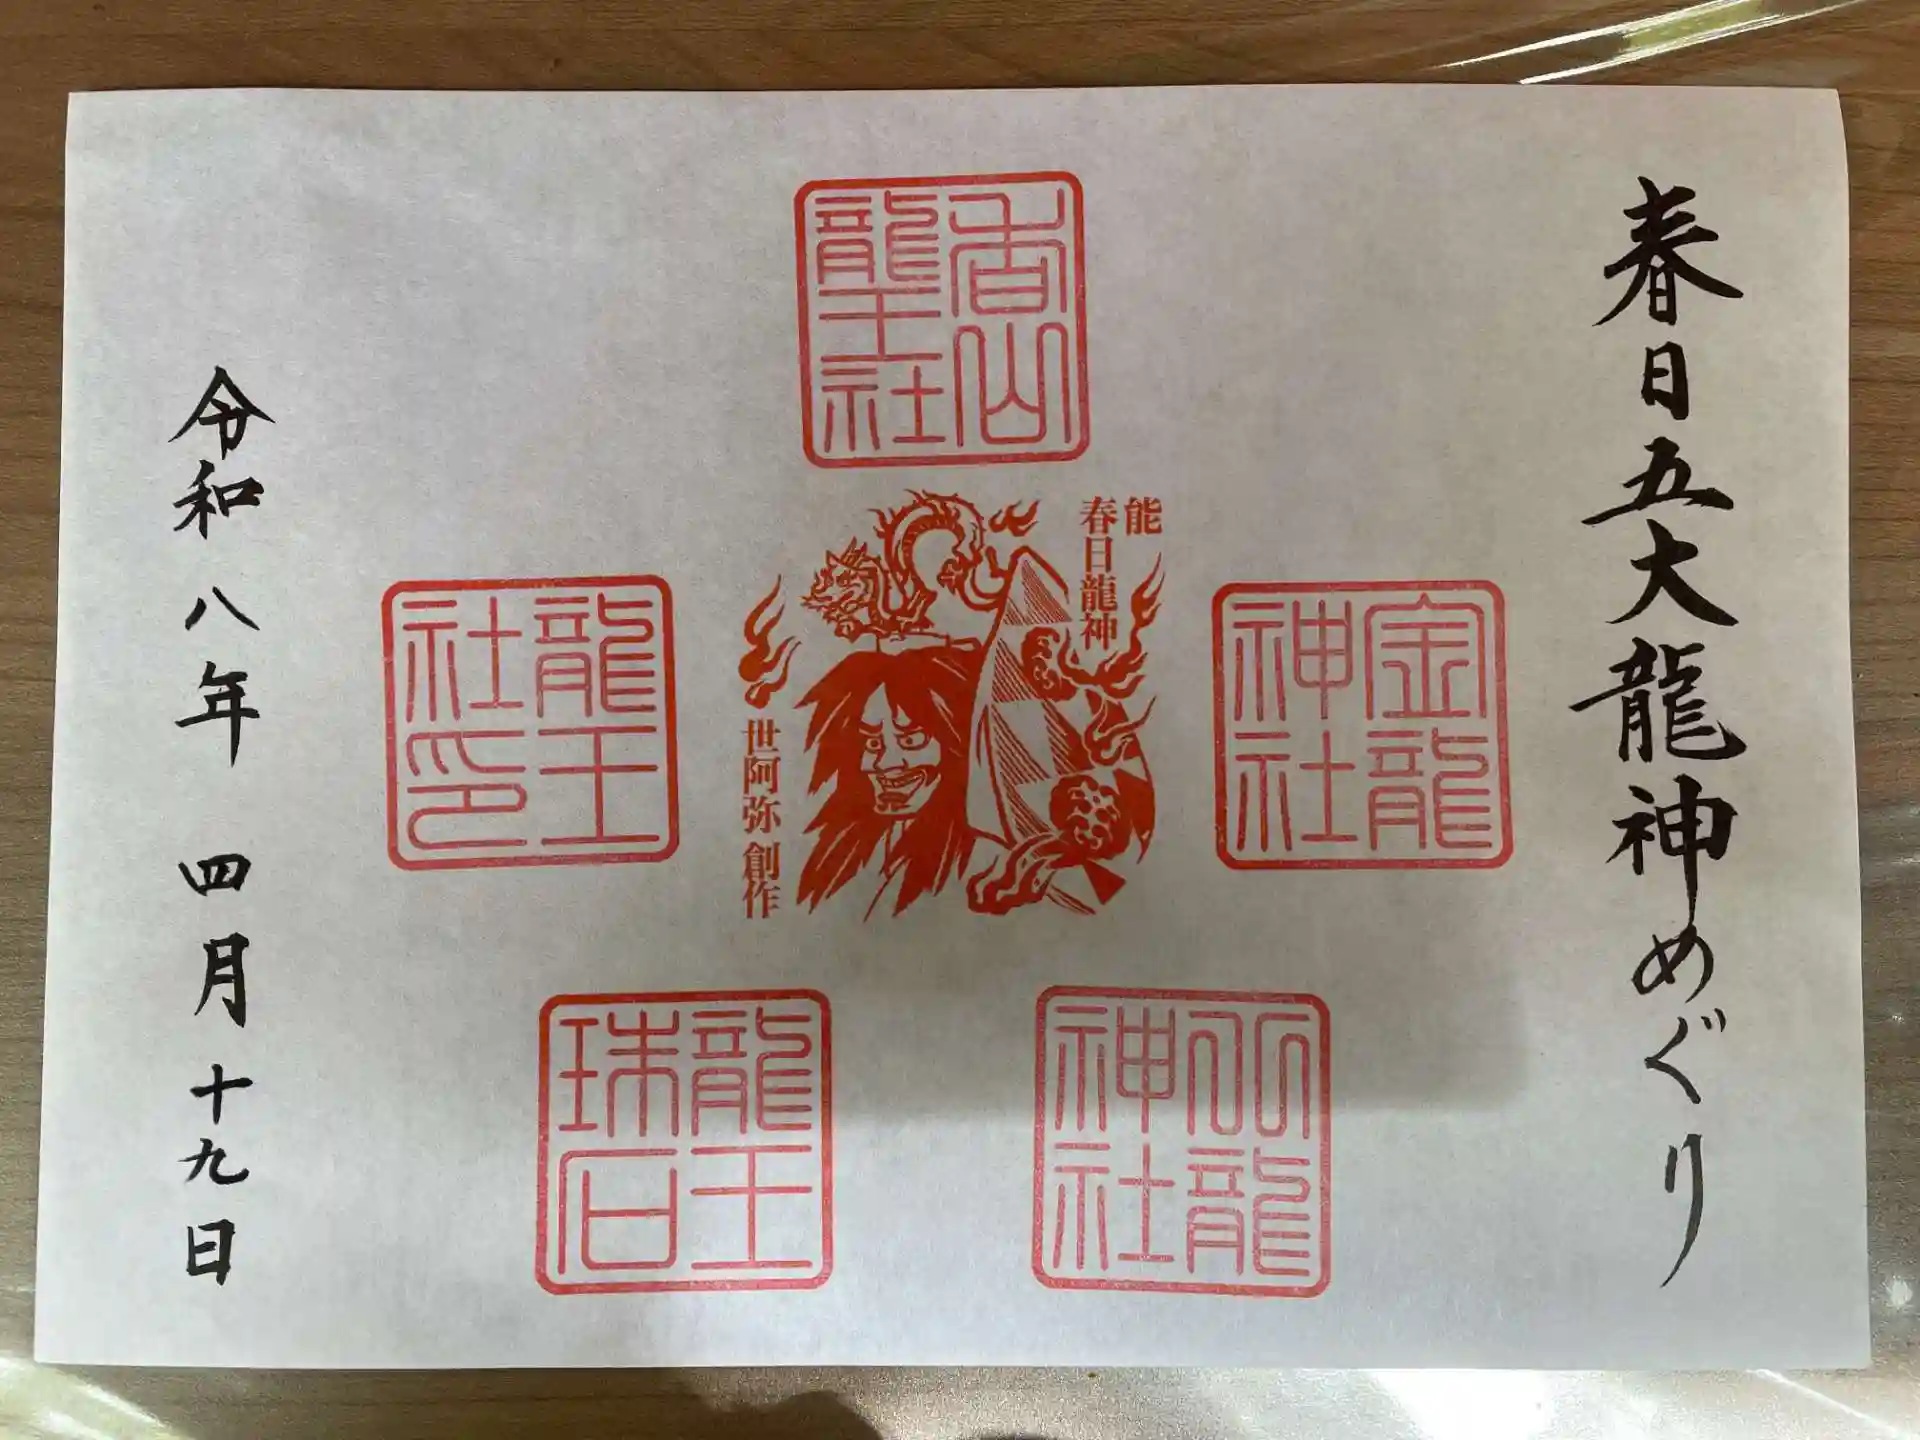 春日五大龍神めぐり
香山
龍王社
能
春日龍神
世阿弥 創作
金龍
神社
龍王
社印
仏龍
神社
龍王
珠石
令和八年 四月十九日